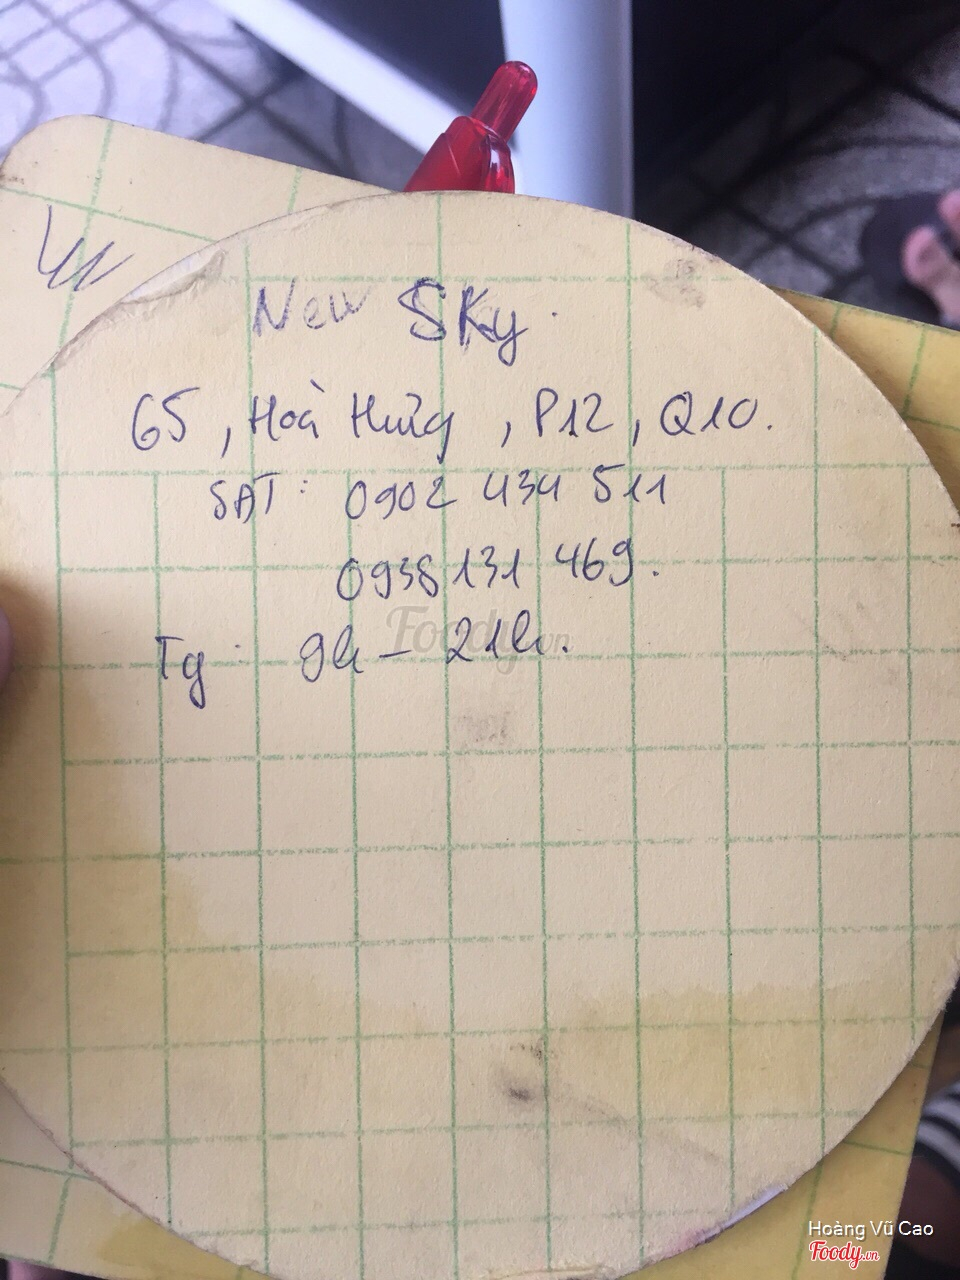 New Sky.
65, Hoà Hưng, P12, Q10.
SĐT: 0902 434 511
0938 131 469.
Foody.vn
Tg: 9h - 21h.
Hoàng Vũ Cao
Foody.vn